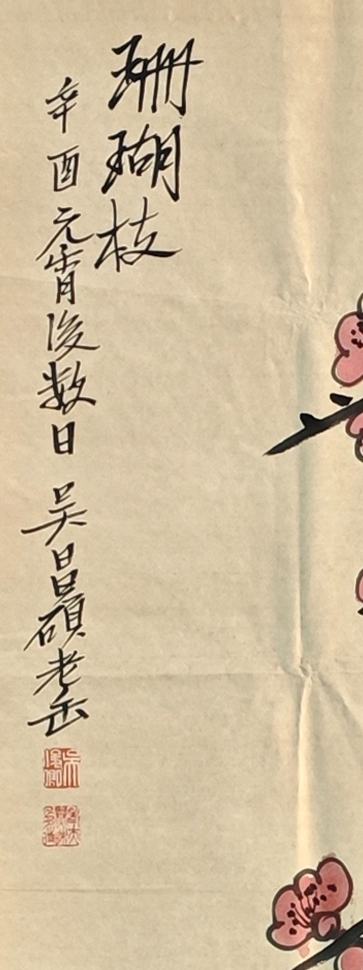 珊瑚枝
辛酉元宵後数日 吴昌碩老缶